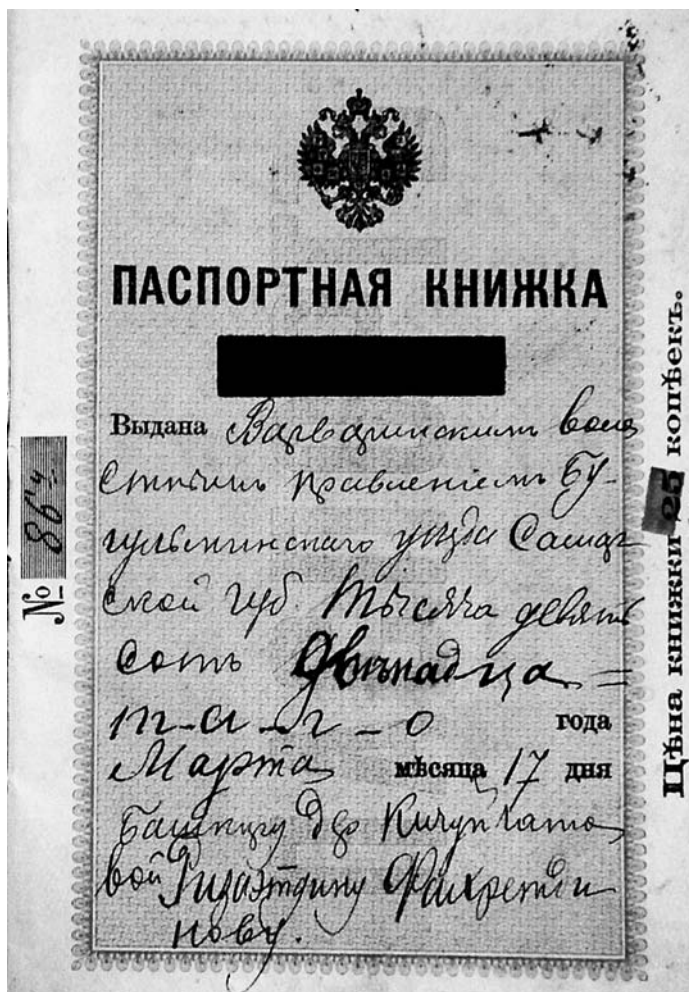 ПАСПОРТНАЯ КНИЖКА
Выдана Варваринскимъ воло
стнымъ правленіемъ Бу-
гульминскаго уѣзда Самар
ской губ. Тысяча девять
сотъ двѣнадца=
т-а-г-о года
Марта мѣсяца 17 дня
Башкиру дер Кичучатов
вой Ризаэтдину Фахретди
нову.
№ 864=
Цѣна книжки 25 копѣекъ.